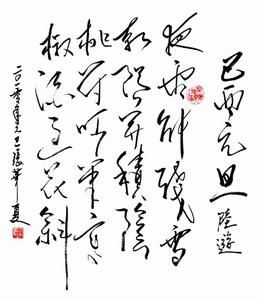 己酉元旦 陸遊
夜雨解殘雪
朝陽開積陰
桃符呵筆寫
椒酒過花斜
二〇一零年元旦張華夏